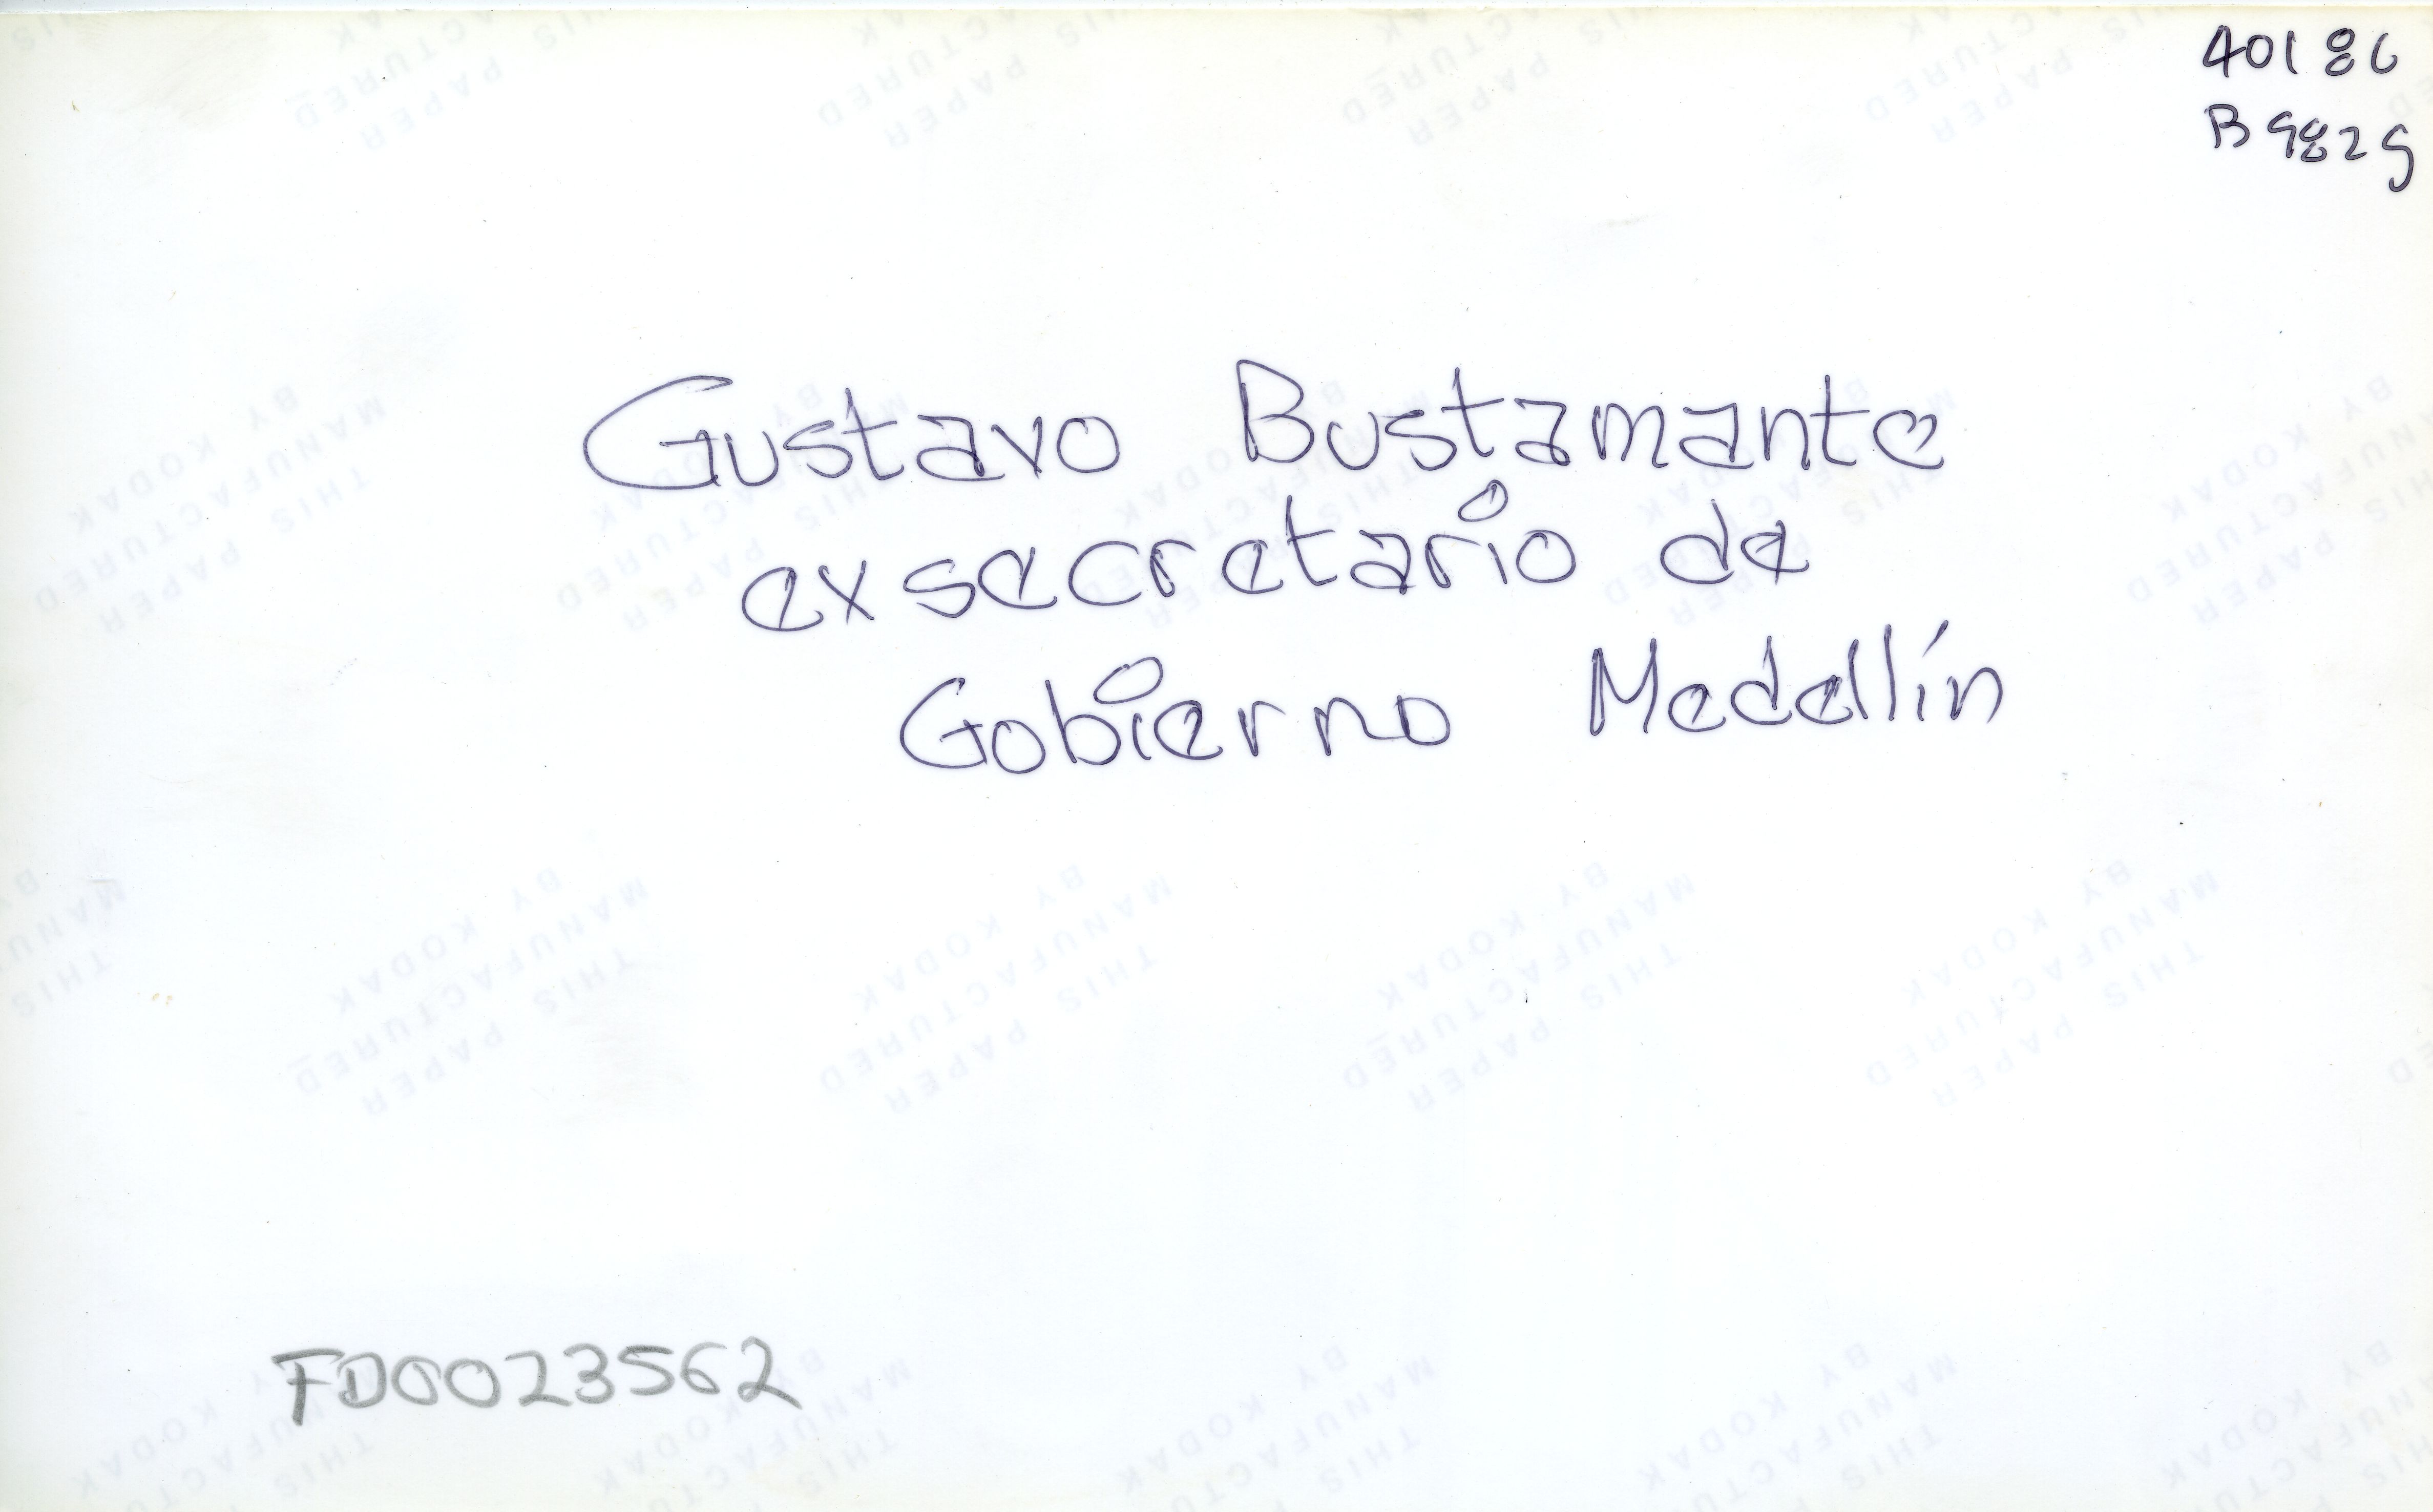 40186
B982g
Gustavo Bustamante
exsecretario de
Gobierno Medellín
FD0023562
THIS PAPER
MANUFACTURED
BY KODAK